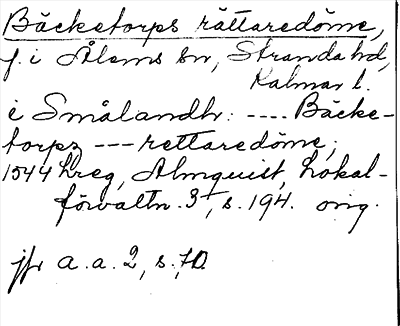 Bäcketorps rättaredöme,
f. i Ålems sn, Stranda hd,
Kalmar l.
i Smålandh: ---- Bäcke-
torpz --- rettaredöme;
1544 Lreg, Almquist, Lokal-
förvaltn. 3, s. 194. orig.
jfr a. a. 2, s. 70.